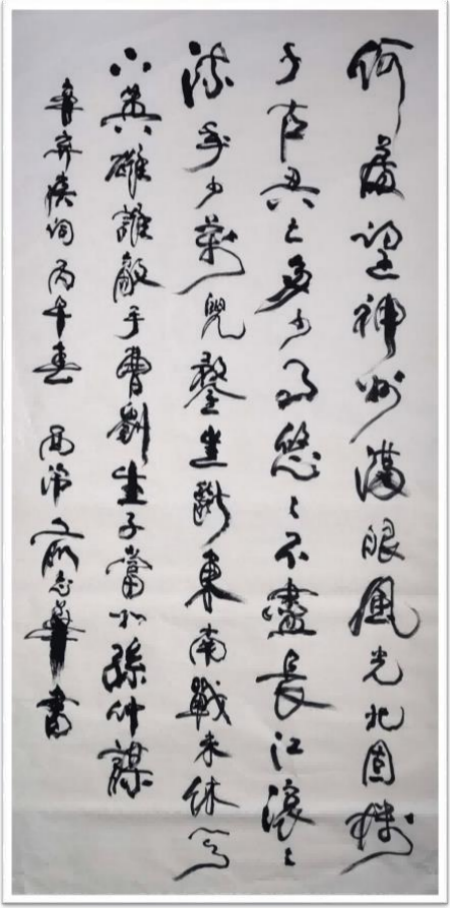 何處望神州滿眼風光北固樓
千古興亡多少事悠〻不盡長江滾〻
流年少萬兜鍪坐斷東南戰未休天
下英雄誰敵手曹劉生子當如孫仲謀
辛弃疾詞丙午春 書